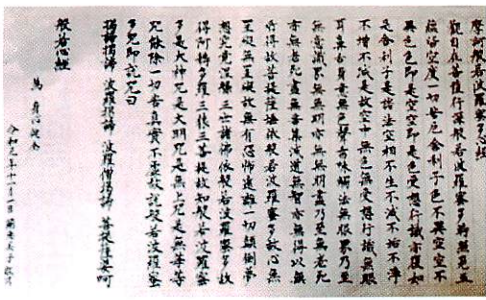 摩訶般若波羅蜜多心經
觀自在菩薩行深般若波羅蜜多時照見五
蘊皆空度一切苦厄舍利子色不異空空不
異色色即是空空即是色受想行識亦復如
是舍利子是諸法空相不生不滅不垢不淨
不增不減是故空中無色無受想行識無眼
耳鼻舌身意無色聲香味觸法無眼界乃至
無意識界無無明亦無無明盡乃至無老死
亦無老死盡無苦集滅道無智亦無得以無
所得故菩提薩埵依般若波羅蜜多故心無
罣礙無罣礙故無有恐怖遠離一切顛倒夢
想究竟涅槃三世諸佛依般若波羅蜜多故
得阿耨多羅三藐三菩提故知般若波羅蜜
多是大神呪是大明呪是無上呪是無等等
呪能除一切苦真實不虛故說般若波羅蜜
多呪即說呪曰
揭諦揭諦 波羅揭諦 波羅僧揭諦 菩提薩婆訶
般若心經
為 身心健全
令和元年十一月一日